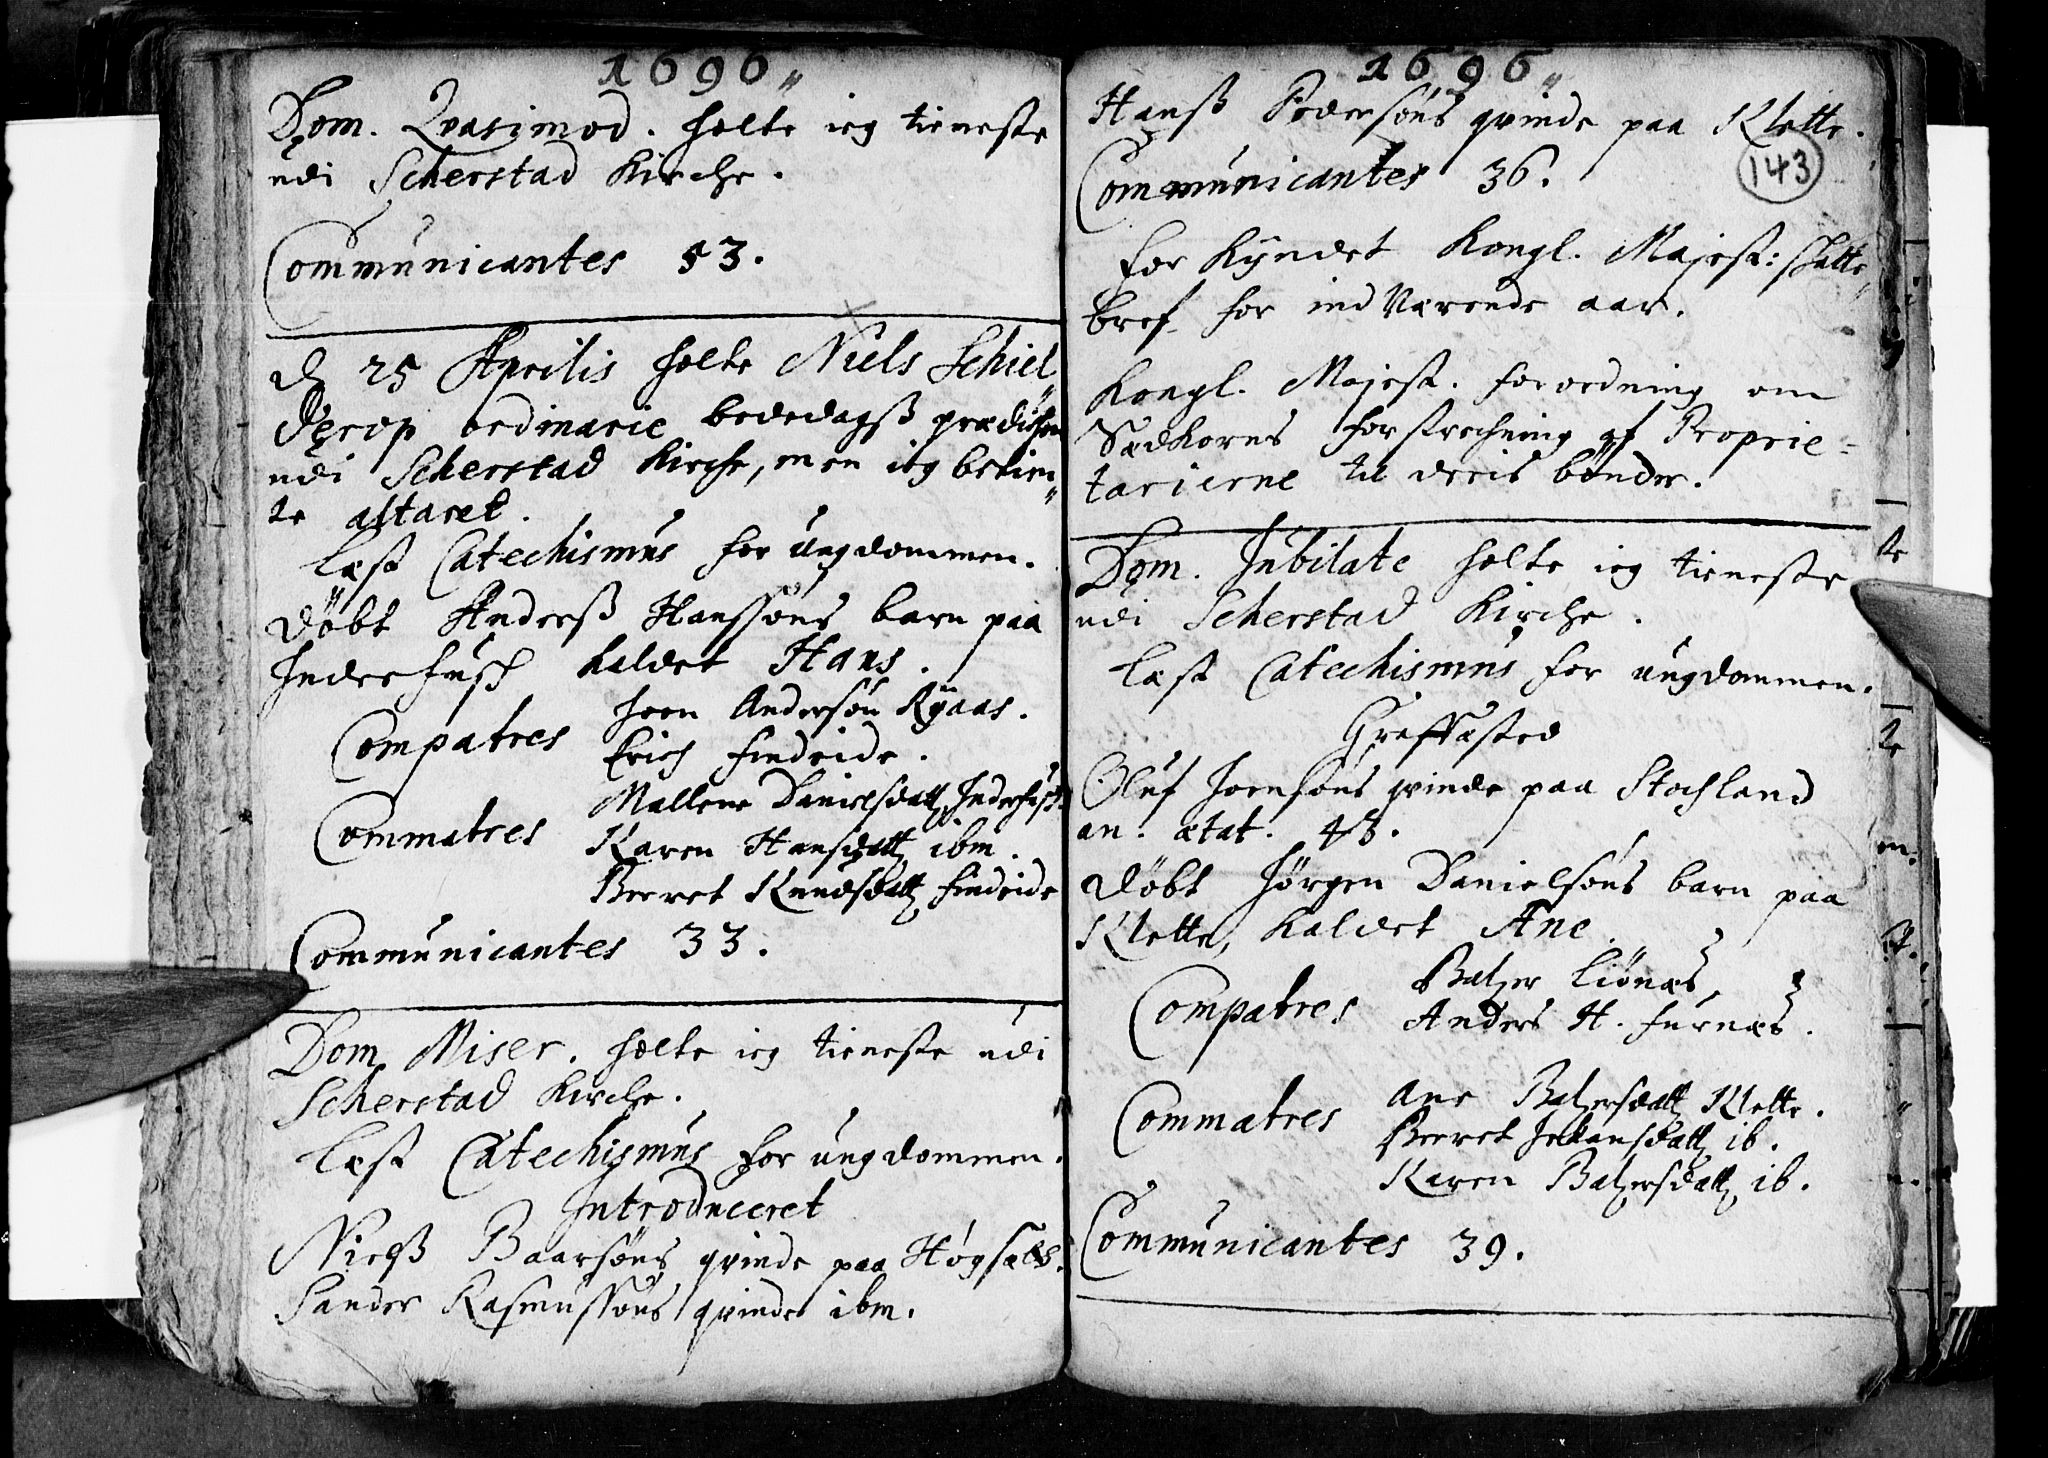 1696
Dom. Qvasimod. holte ieg tieneste
udi Scherstad Kirche.
Communicantes 53.
d 25 Aprilis holte Niels Schiel
derop ordinarie bededagsß prædichen
udi Scherstad Kirche, men ieg betien
te altaret.
Læst Catechismus for ungdommen.
Døbt Anderß Hanssøns barn paa
Inderhusß kaldet Hans.
Compatres Joen Andersøn Ryaas.
Erich Findeide.
Commatres Mallene Danielsdatt Inderhuß
Karen Hansdatt ibm.
Berret Knudsdatt Findeide
Communicantes 33.
Dom Miser. holte ieg tieneste udi
Scherstad Kirche.
Læst Catechismus for ungdommen.
Introduceret
Nielß Baarsøns qvinde paa Høgsæt.
Sander Rasmussøns qvinde ibm.
1696
Hanß Pedersøns qvinde paa Klette.
143
Communicantes 36.
For Kyndet Kongl. Majest: schatte
bref for indværende aar.
Kongl. Majest. forordning om
Sædkorns forstrechning af Proprie=
tarierne til deris bønder.
Dom. Jubilate holte ieg tieneste
udi Scherstad Kirche.
Læst Catechismus for ungdommen.
Graffæsted
Oluf Joensøns qvinde paa Stochland
an. ætat. 48.
Døbt Jørgen Danielsøns barn paa
Klette, kaldet Ane.
Compatres Balzer Liønæs,
Anders H. Furnæs.
Commatres Ane Balzersdatt Klette.
Berret Johansdatt ib.
Karen Balzersdatt ib.
Communicantes 39.